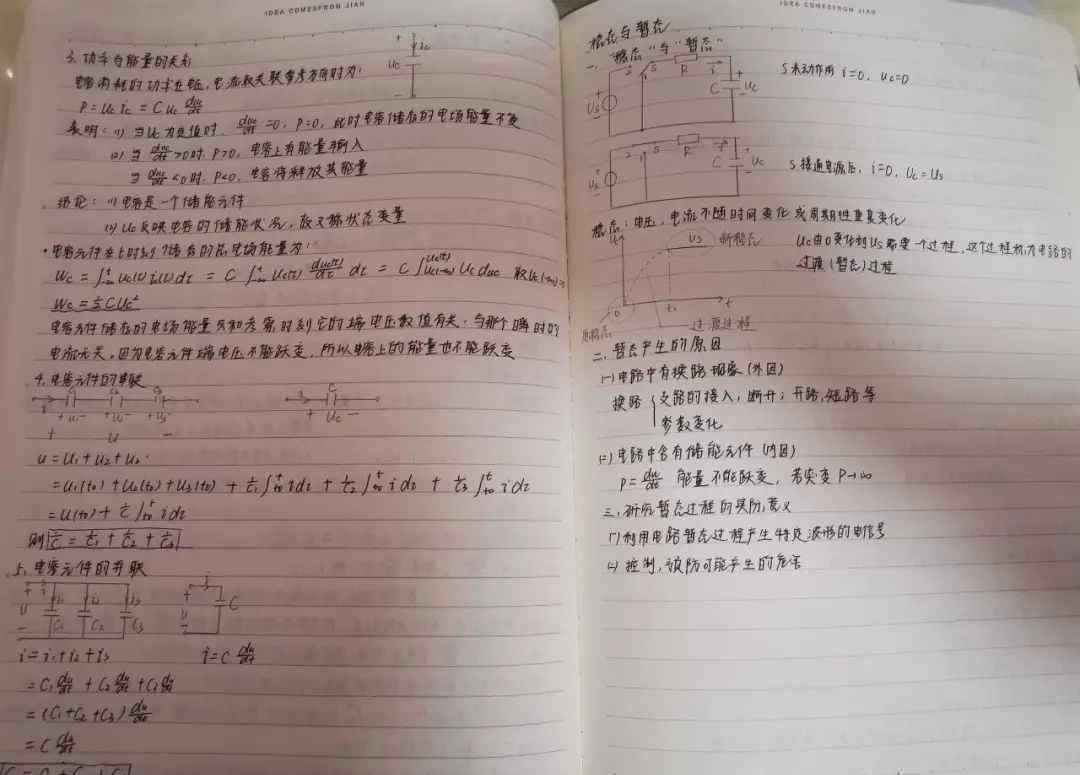 IDEA COMESFROM JIAN
3. 功率与能量的关系
电容消耗的功率在电压,电流取关联参考方向时为:
P = Uc ic = C Uc du/dt
+ ic
Uc
−
表明: (1) 当Uc为负值时, duc/dt =0, P=0, 此时电容储存的电场能量不变
(2) 当 duc/dt >0时, P>0, 电容上有能量输入
当 duc/dt <0时, P<0, 电容将释放其能量
结论: (1) 电容是一个储能元件
(2) Uc反映电容的储能状况, 故又称状态变量
• 电容元件在t时刻储存的总电场能量为:
Wc = ∫ uc(t) i(t) dt = C ∫ uc(t) duc(t)/dt dt = C ∫ Uc duc 取Uc(-∞)=0
Wc = ½CUc²
电容元件储存的电场能量只和考察时刻它的端电压数值有关, 与那个瞬时的
电流无关, 因为电容元件端电压不能跃变, 所以电容上的能量也不能跃变
4. 电容元件的串联
C1 C2 C3
i + U1 − + U2 − + U3 −
+ U −
C
i + Uc −
u = U1 + U2 + U3
= U1(t0) + U2(t0) + U3(t0) + 1/C1 ∫ i dt + 1/C2 ∫ i dt + 1/C3 ∫ i dt
= U(t0) + 1/C ∫ i dt
则 1/C = 1/C1 + 1/C2 + 1/C3
5. 电容元件的并联
+ i i1 i2 i3
U C1 C2 C3
−
i
+ U − C
i = i1 + i2 + i3
i = C du/dt
= C1 du/dt + C2 du/dt + C3 du/dt
= (C1 + C2 + C3) du/dt
= C du/dt
IDEA COMESFROM JIAN
稳态与暂态
一. 稳态"与"暂态"
2 S R i +
1 C Uc
Us + − −
S未动作前 i=0, Uc=0
2 S R i +
1 C Uc
Us + − −
S接通电源后, i=0, Uc=Us
稳态: 电压, 电流不随时间变化或周期性重复变化
Uc由0变化到Us需要一个过程, 这个过程称为电路的
过渡(暂态)过程
Us 新稳态
0 t0 t
原稳态 过渡过程
二. 暂态产生的原因
(一) 电路中有换路现象(外因)
换路 { 支路的接入, 断开; 开路, 短路等
参数变化
(二) 电路中含有储能元件(内因)
P = dw/dt 能量不能跃变, 若突变 P→∞
三. 研究暂态过程的实际意义
(1) 利用电路暂态过程产生特定波形的电信号
(2) 控制, 预防可能产生的危害